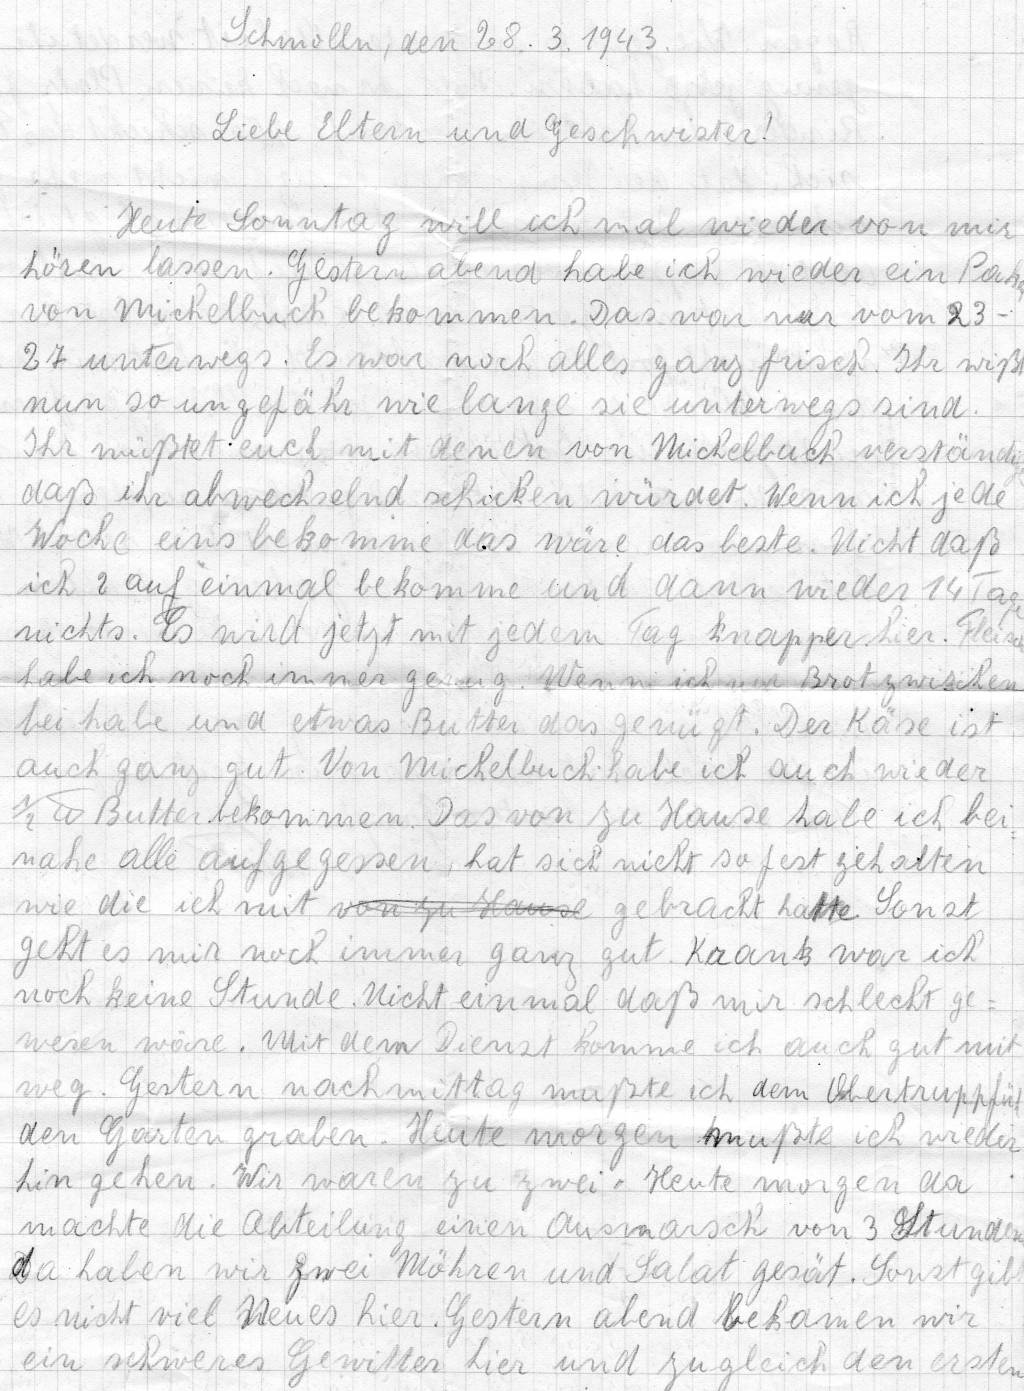 Schmolln, den 28. 3. 1943.
Liebe Eltern und Geschwister!
Heute Sonntag will ich mal wieder von mir
hören lassen. Gestern abend habe ich wieder ein Pak
von Michelbuch bekommen. Das war nur vom 23-
27 unterwegs. Es war noch alles ganz frisch. Ihr wißt
nun so ungefähr wie lange sie unterwegs sind.
Ihr müßtet euch mit denen von Michelbuch verständig
daß ihr abwechselnd schicken würdet. Wenn ich jede
Woche eins bekomme das wäre das beste. Nicht daß
ich 2 auf einmal bekomme und dann wieder 14 Tage
nichts. Es wird jetzt mit jedem Tag knapper hier. Fleisch
habe ich noch immer genug. Wenn ich nur Brot zwischen
bei habe und etwas Butter das genügt. Der Käse ist
auch ganz gut. Von Michelbuch habe ich auch wieder
1/2 ℔ Butter bekommen. Das von zu Hause habe ich bei=
nahe alle aufgegessen, hat sich nicht so fest gehalten
wie die ich mit von zu Hause gebracht hatte. Sonst
geht es mir noch immer ganz gut. Krank war ich
noch keine Stunde. Nicht einmal daß mir schlecht ge=
wesen wäre. Mit dem Dienst komme ich auch gut mit
weg. Gestern nachmittag mußte ich dem Obertruppfüh
den Garten graben. Heute morgen mußte ich wieder
hin gehen. Wir waren zu zwei. Heute morgen da
machte die Abteilung einen Ausmarsch von 3 Stunden
da haben wir zwei Möhren und Salat gesät. Sonst gibt
es nicht viel Neues hier. Gestern abend bekamen wir
ein schweres Gewitter hier und zugleich den ersten